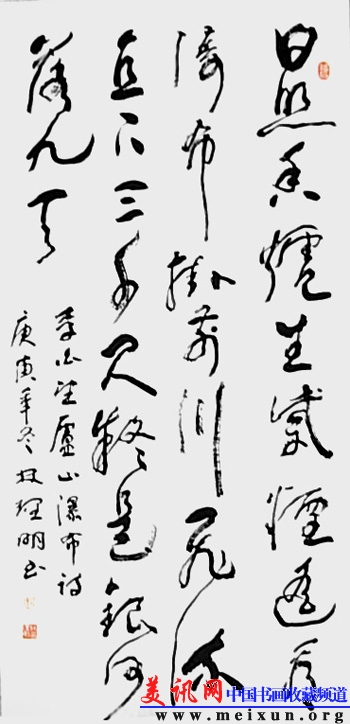 日照香爐生紫煙遥看
瀑布掛前川飛流
直下三千尺疑是銀河
落九天
李白望廬山瀑布詩
庚寅年冬林理明书
美讯网 中国书画收藏频道
www.meixun.org